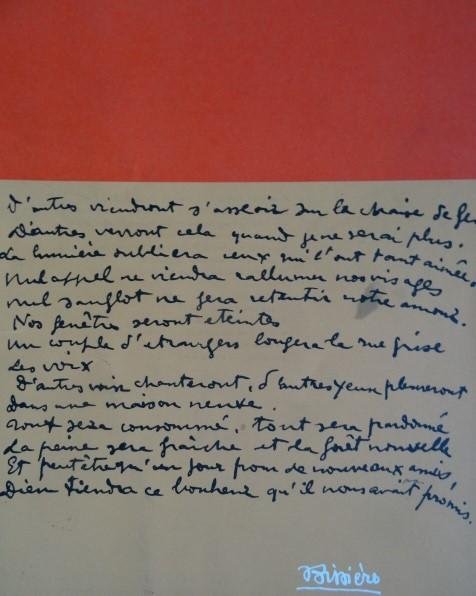 D'autres viendront s'asseoir sur la chaise de fer
D'autres verront cela quand je ne serai plus.
La lumière oubliera ceux qui l'ont tant aimée
Nul appel ne viendra rallumer nos visages
nul sanglot ne fera retentir notre amour.
Nos fenêtres seront eteintes
un couple d'etrangers longera la rue grise
Les voix
D'autres voix chanteront, d'autres yeux pleureront
Dans une maison neuve.
Tout sera consommé, tout sera pardonné
La peine sera fraîche et la forêt nouvelle
Et peut être qu'un jour pour de nouveaux amis,
Dieu tiendra ce bonheur qu'il nous avait promis.
Bissière